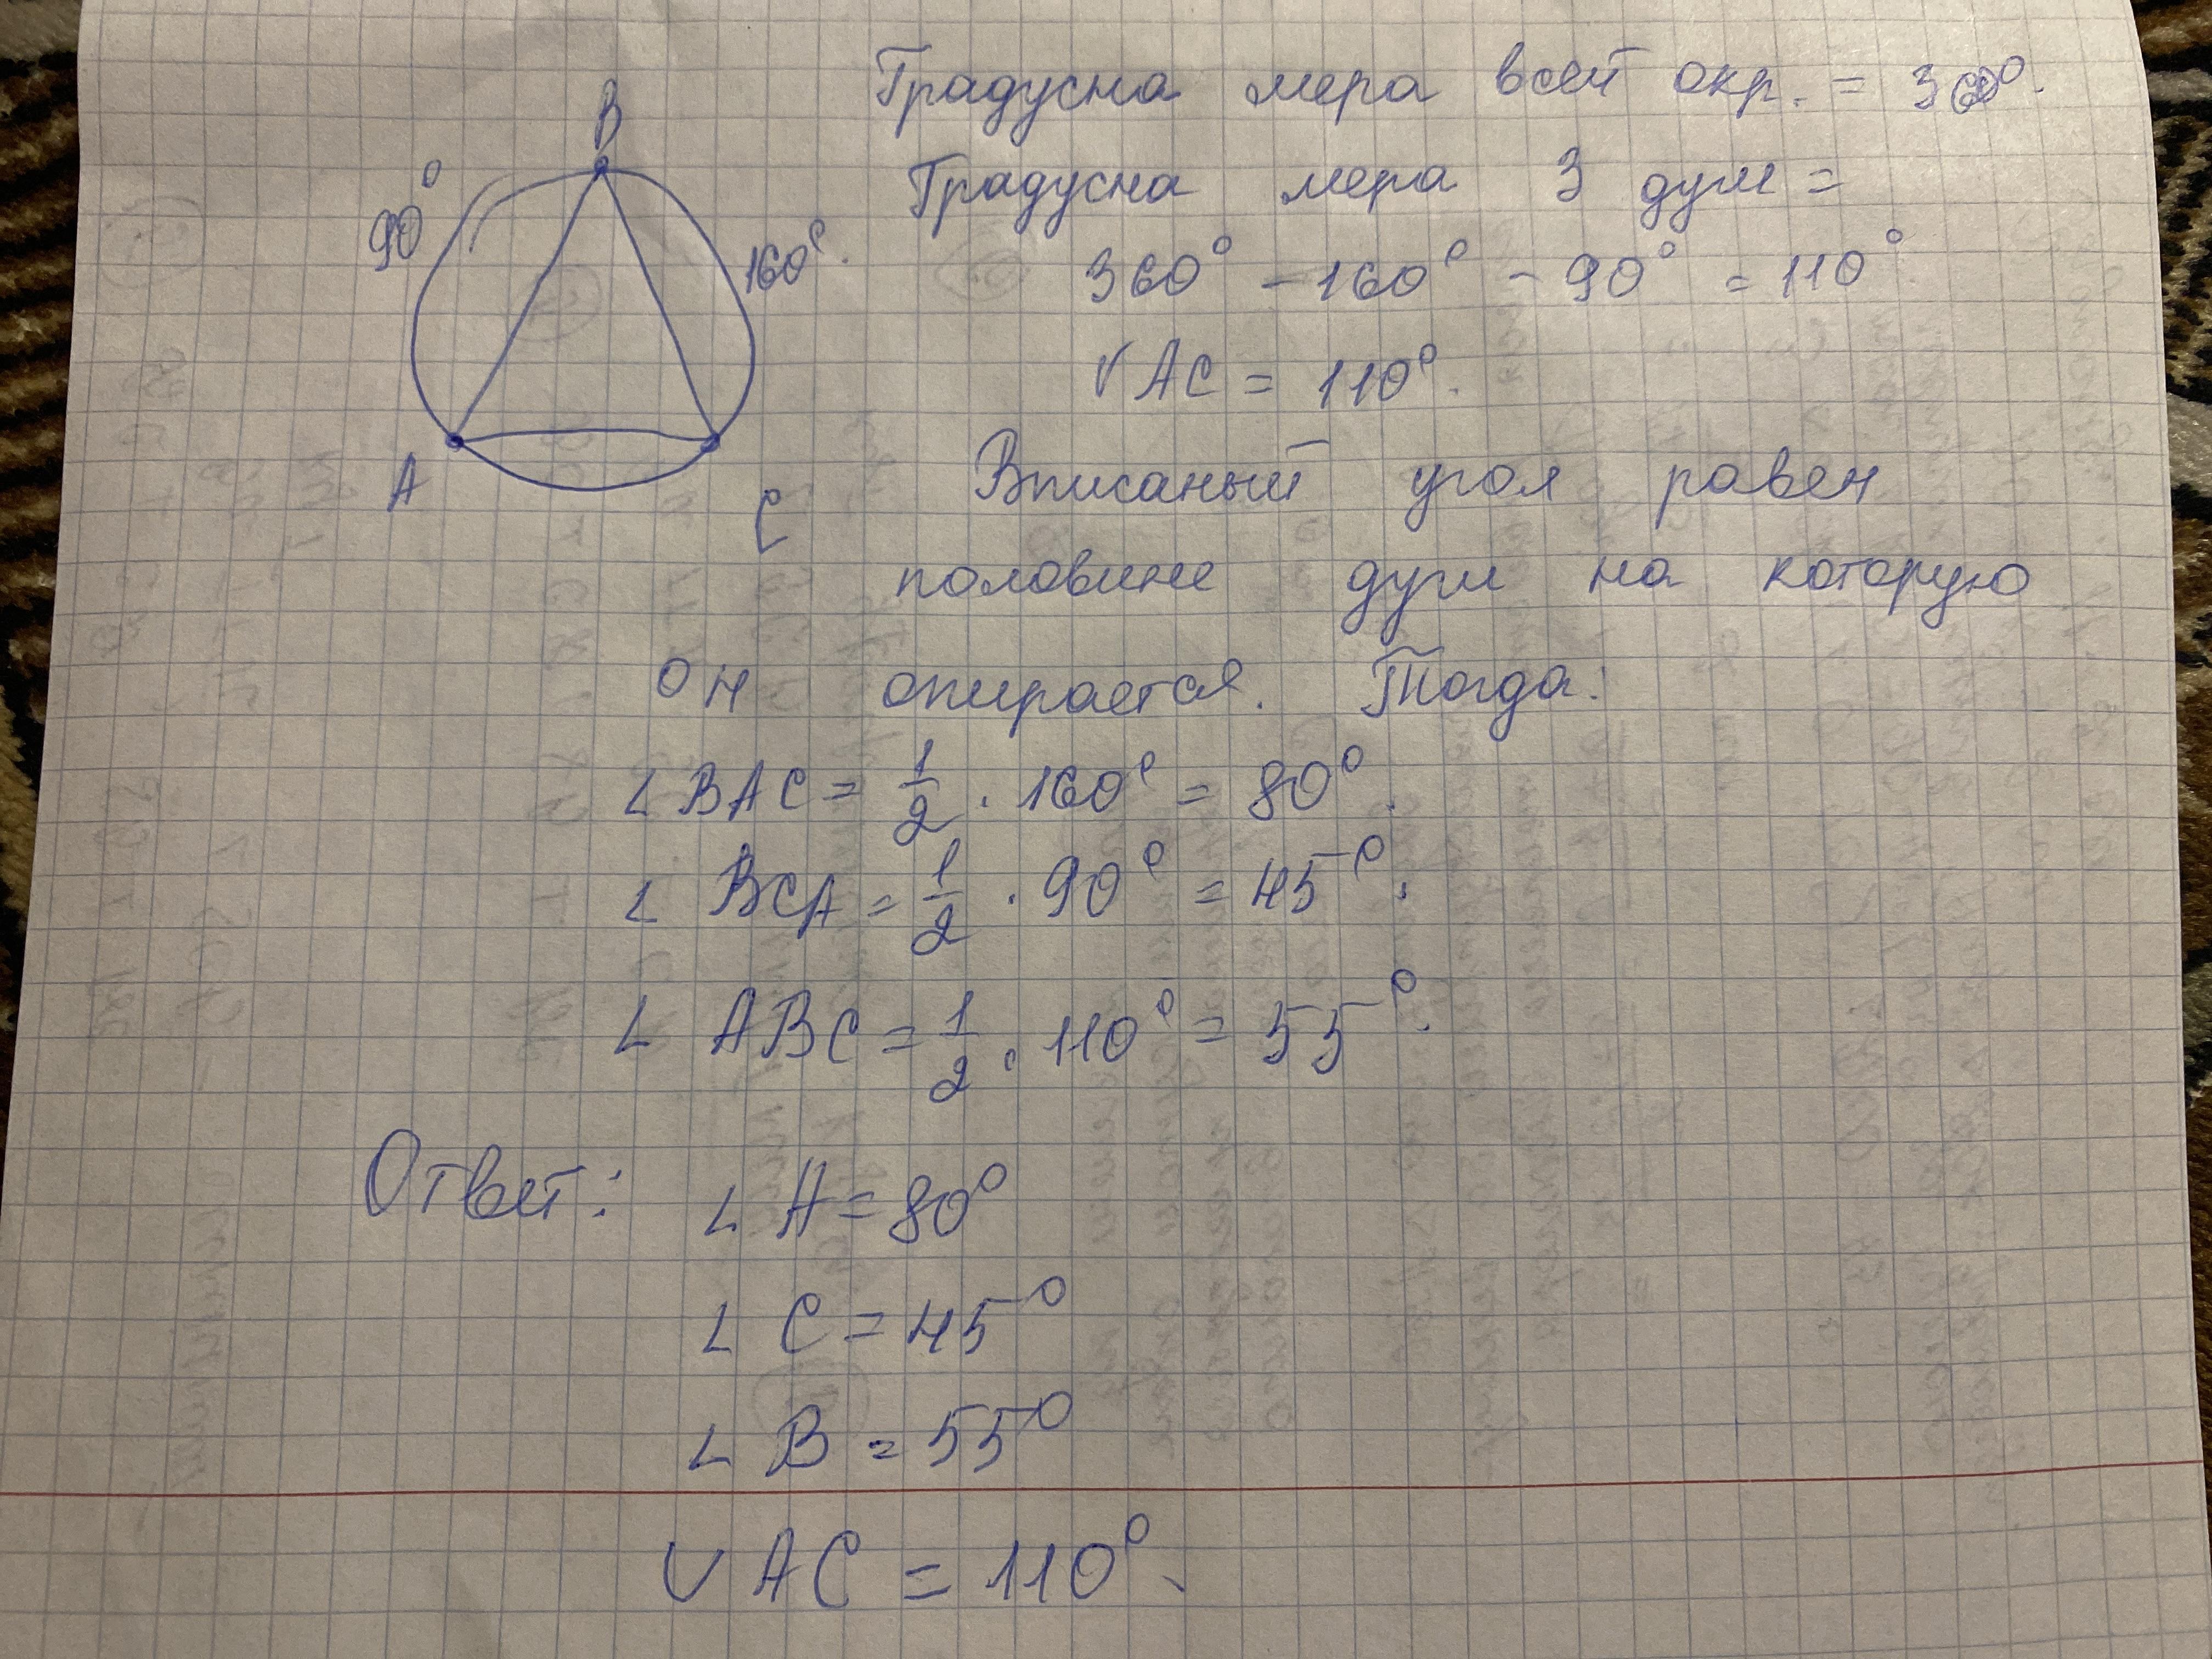 B
90°
160°.
A
C
Градусна мера всей окр. = 360°.
Градусна мера 3 дуги =
360° - 160° - 90° = 110°
∨AC = 110°.
Вписаный угол равен
половине дуги на которую
он опирается. Тогда:
∠BAC = 1/2 · 160° = 80°.
∠BCA = 1/2 · 90° = 45°.
∠ABC = 1/2 · 110° = 55°.
Ответ: ∠A = 80°
∠C = 45°
∠B = 55°
∨AC = 110°.